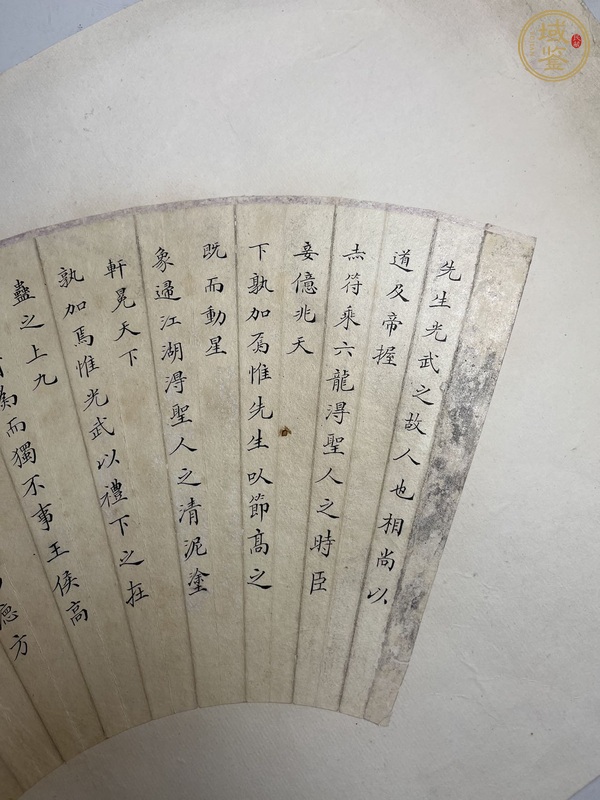 先生光武之故人也相尚以
道及帝握
赤符乘六龍得聖人之時臣
妾億兆天
下孰加焉惟先生以節高之
既而動星
象歸江湖得聖人之清泥塗
軒冕天下
孰加焉惟光武以禮下之在
蠱之上九
為而獨不事王侯高
德方
域鉴